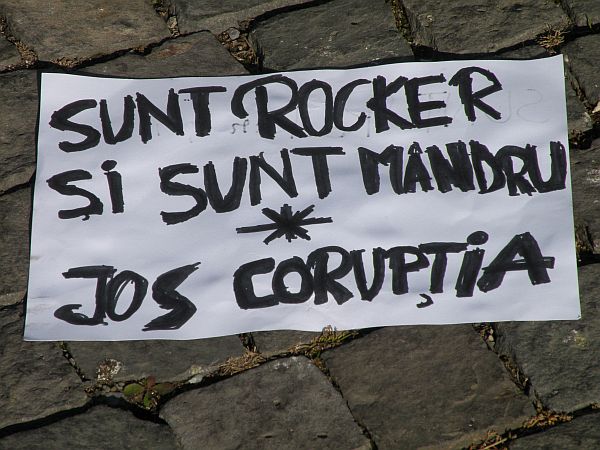 SUNT ROCKER
ȘI SUNT MÂNDRU
*
JOS CORUPȚIA